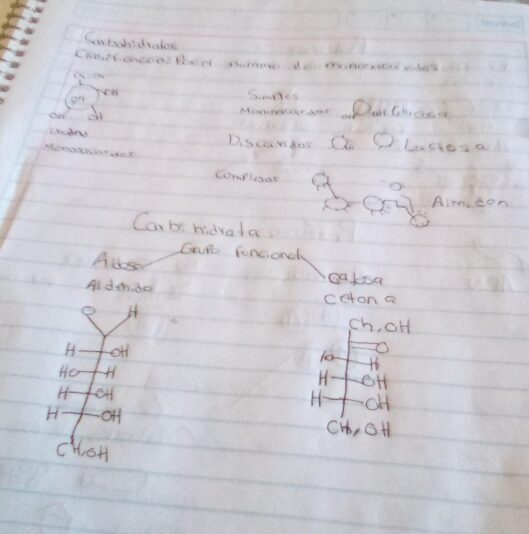 Carbohidratos
Clasificacion: Por el numero de monosacaridos
OH
OH
OH
OH
Simples
Monosacaridos OH OH Glucosa
Disacaridos Lactosa
Complejos
O
Almidon
Carbihidrata
Grupo funcional
Aldosa
Aldehido
Cetosa
Cetona
O H
H OH
HO H
H OH
H OH
CH2OH
CH2OH
O
HO H
H OH
H OH
CH2OH